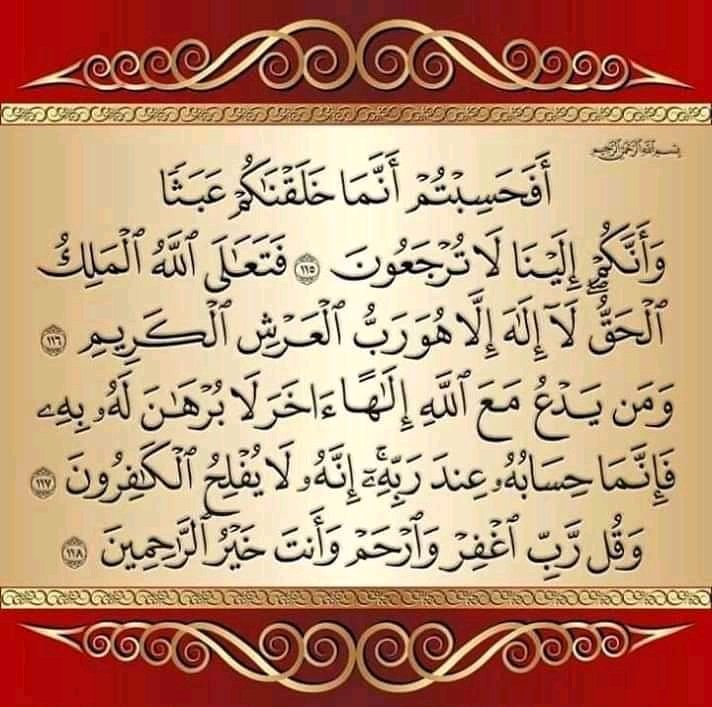 بسم الله الرحمن الرحيم
أَفَحَسِبْتُمْ أَنَّمَا خَلَقْنَاكُمْ عَبَثًا
وَأَنَّكُمْ إِلَيْنَا لَا تُرْجَعُونَ ١١٥ فَتَعَالَى ٱللَّهُ ٱلْمَلِكُ
ٱلْحَقُّ ۖ لَآ إِلَٰهَ إِلَّا هُوَ رَبُّ ٱلْعَرْشِ ٱلْكَرِيمِ ١١٦
وَمَن يَدْعُ مَعَ ٱللَّهِ إِلَٰهًا ءَاخَرَ لَا بُرْهَٰنَ لَهُۥ بِهِۦ
فَإِنَّمَا حِسَابُهُۥ عِندَ رَبِّهِۦٓ ۚ إِنَّهُۥ لَا يُفْلِحُ ٱلْكَٰفِرُونَ ١١٧
وَقُل رَّبِّ ٱغْفِرْ وَٱرْحَمْ وَأَنتَ خَيْرُ ٱلرَّاحِمِينَ ١١٨